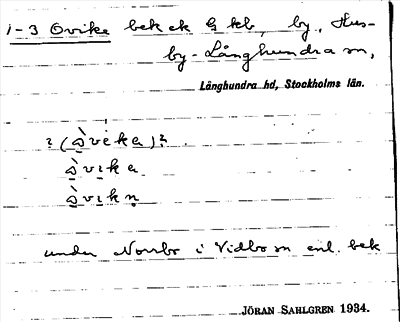 1-3 Ovike bek ek G kb, by, Hus-
by-Långhundra sn,
Långhundra hd, Stockholms län.
2 (ὰveka)?
ὰvika
ὰvikn̥
under Norrbo i Vidbo sn enl. bek
JÖRAN SAHLGREN 1934.